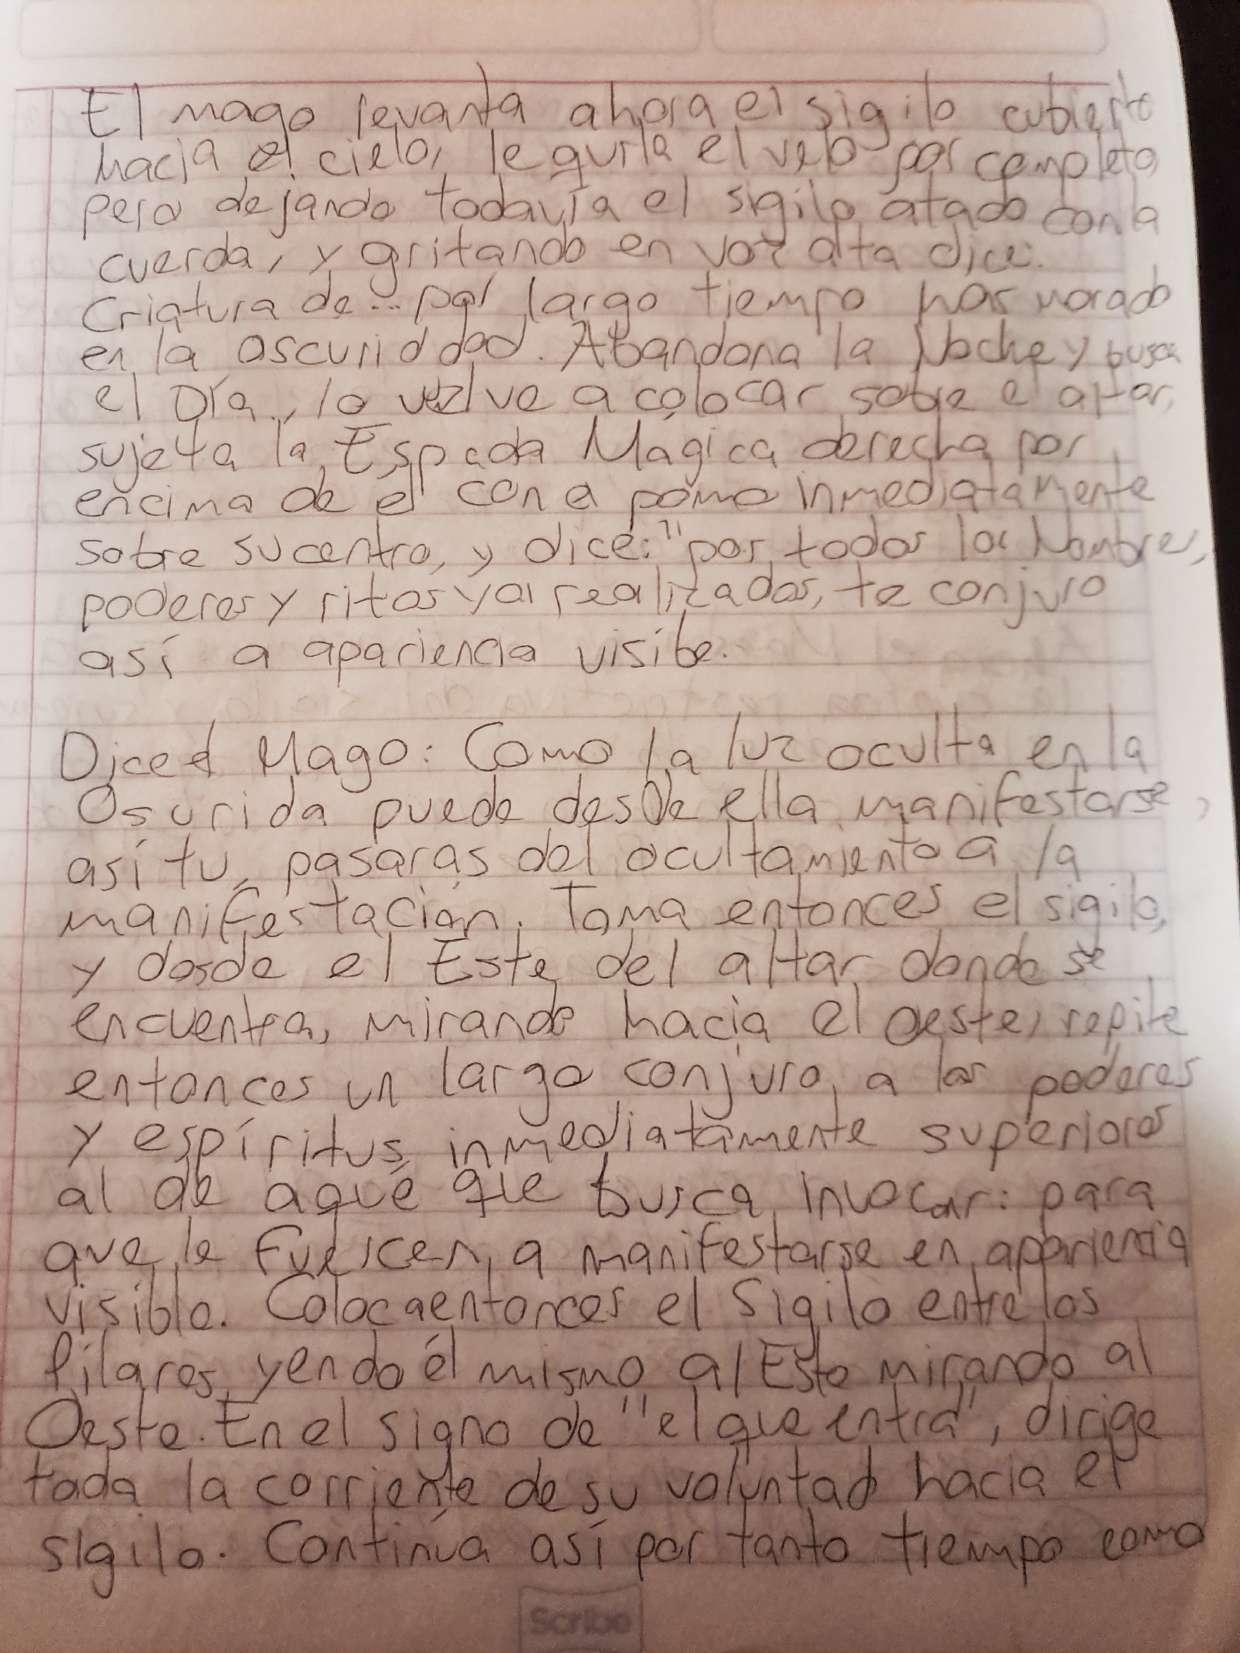 El mago levanta ahora el sigilo cubierto
hacia el cielo, le quita el velo por completo
pero dejando todavía el sigilo atado con la
cuerda, y gritando en voz alta dice:
Criatura de... por largo tiempo has morado
en la oscuriddad. Abandona la Noche y busca
el Día, lo vuelve a colocar sobre el altar,
sujeta la Espada Mágica derecha por
encima de el con el pomo inmediatamente
sobre su centro, y dice: "por todos los Nombres,
poderes y ritos ya realizados, te conjuro
así a apariencia visible.
Dice el Mago: Como la luz oculta en la
Oscurida puede desde ella manifestarse,
así tu, pasaras del ocultamiento a la
manifestación. Toma entonces el sigilo,
y desde el Este del altar donde se
encuentra, mirando hacia el oeste, repite
entonces un largo conjuro, a los poderes
y espíritus inmediatamente superiores
al de aque que busca invocar: para
que le fuercen a manifestarse en apariencia
visible. Coloca entonces el Sigilo entre los
Pilares, yendo él mismo al Este mirando al
Oeste. En el signo de "el que entra", dirige
toda la corriente de su voluntad hacia el
sigilo. Continúa así por tanto tiempo como
Scribe